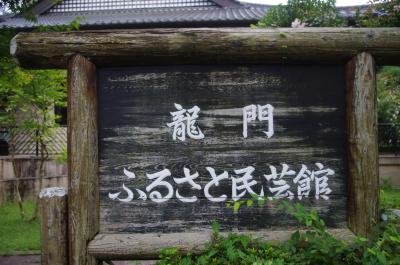 龍門
ふるさと民芸館